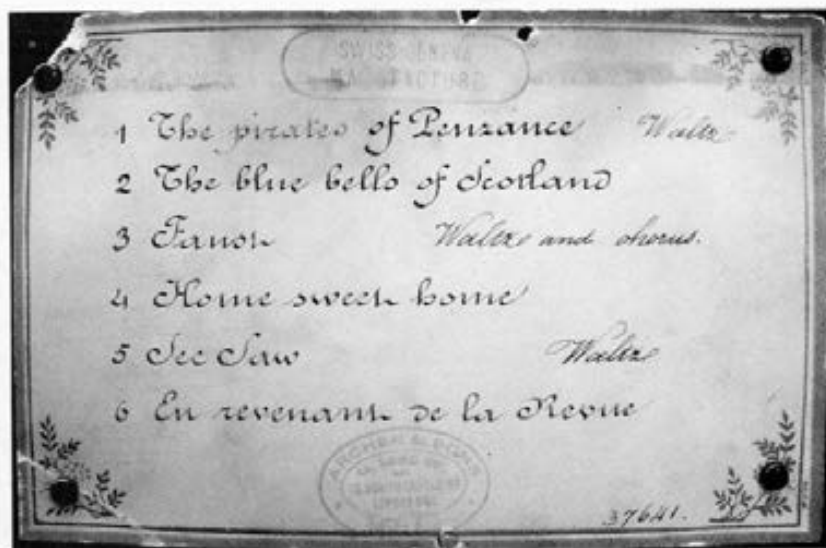 SWISS GENEVA
1 The pirates of Penzance Waltz
2 The blue bells of Scotland
3 Faust Waltz and chorus.
4 Home sweet home
5 See Saw Waltz
6 En revenant de la Revue
& SONS
37641.